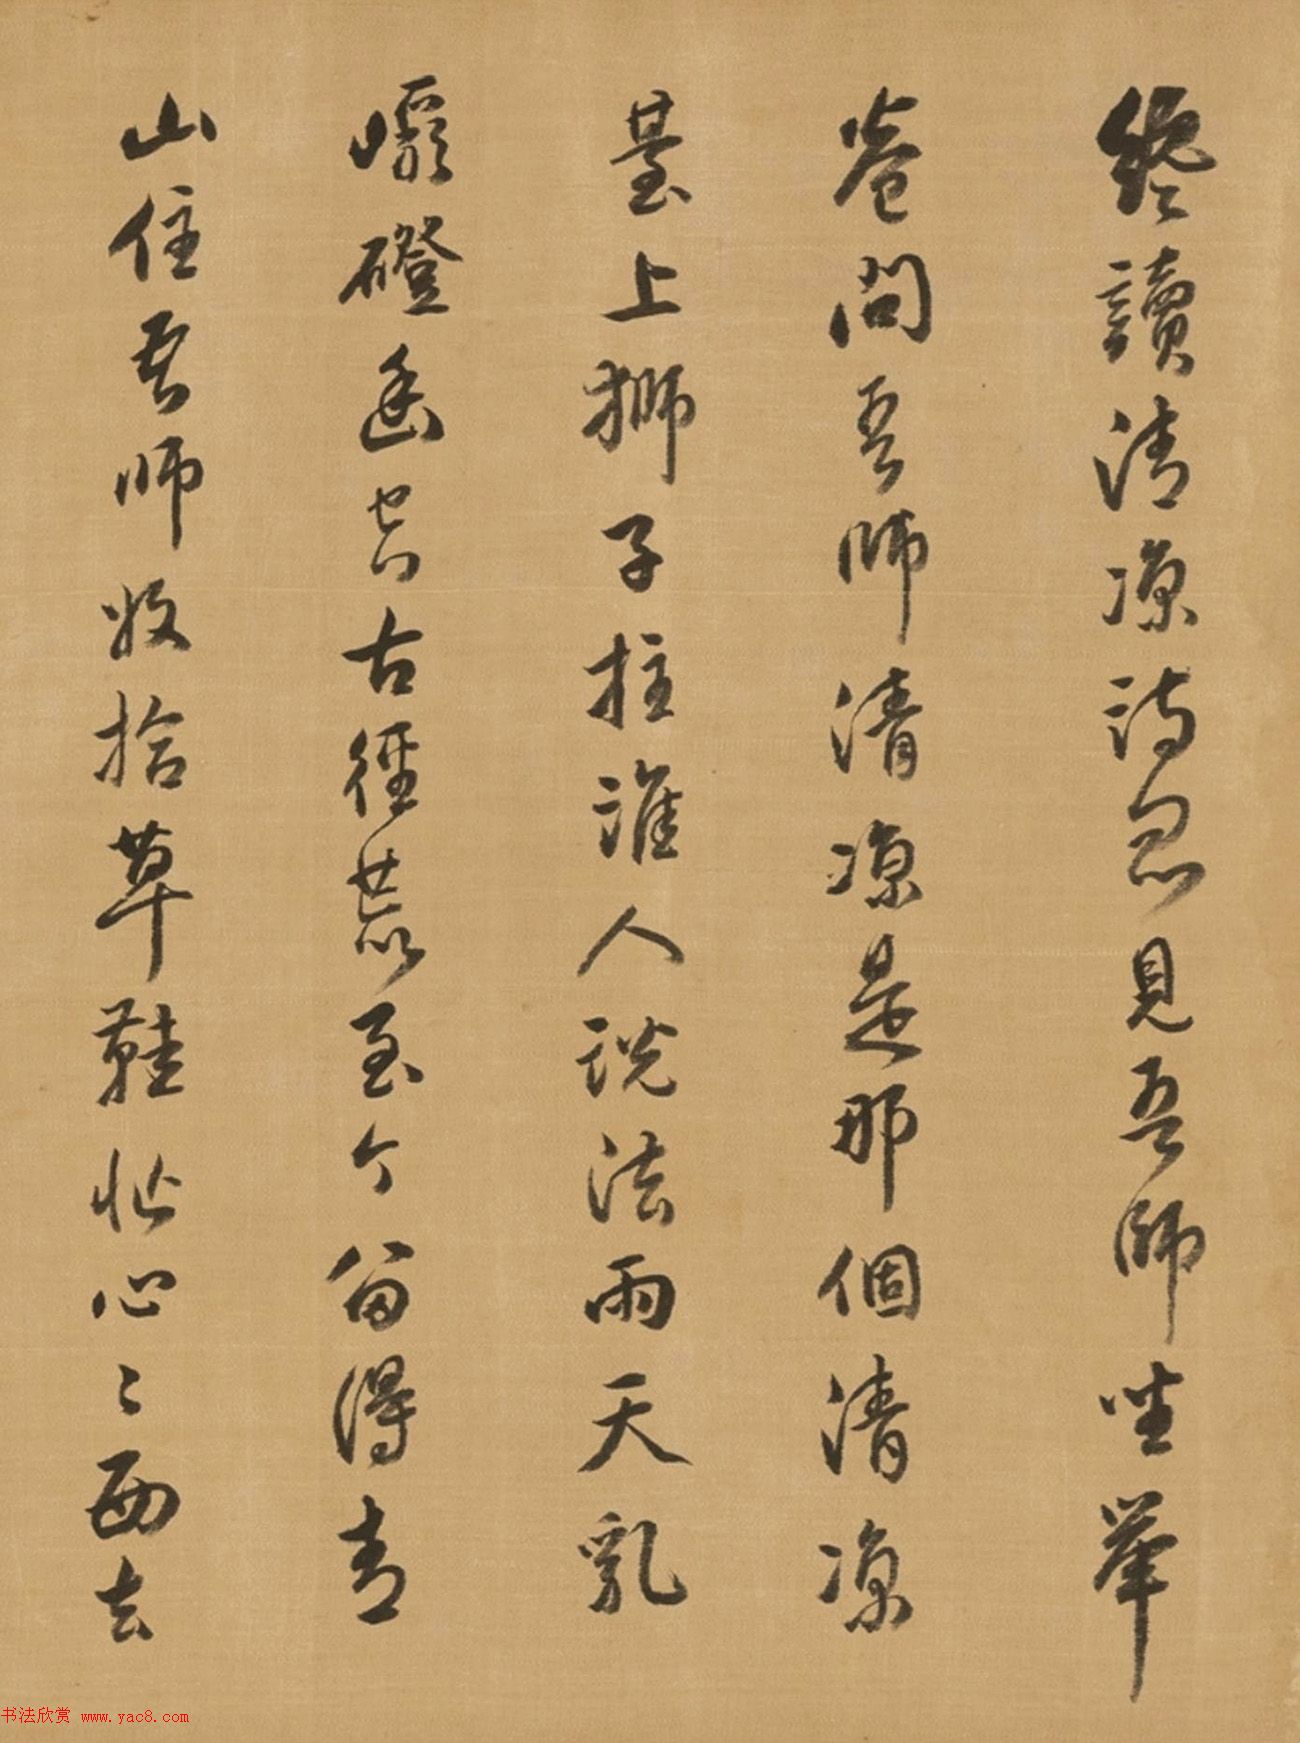 終讀清涼詩忽見吾師坐舉
卷問吾師清涼是那個清涼
臺上獅子拄誰人說法雨天乳
巖磴幽空古徑荒至今留得青
山住吾師收拾草鞋忙心心西去
书法欣赏 www.yac8.com